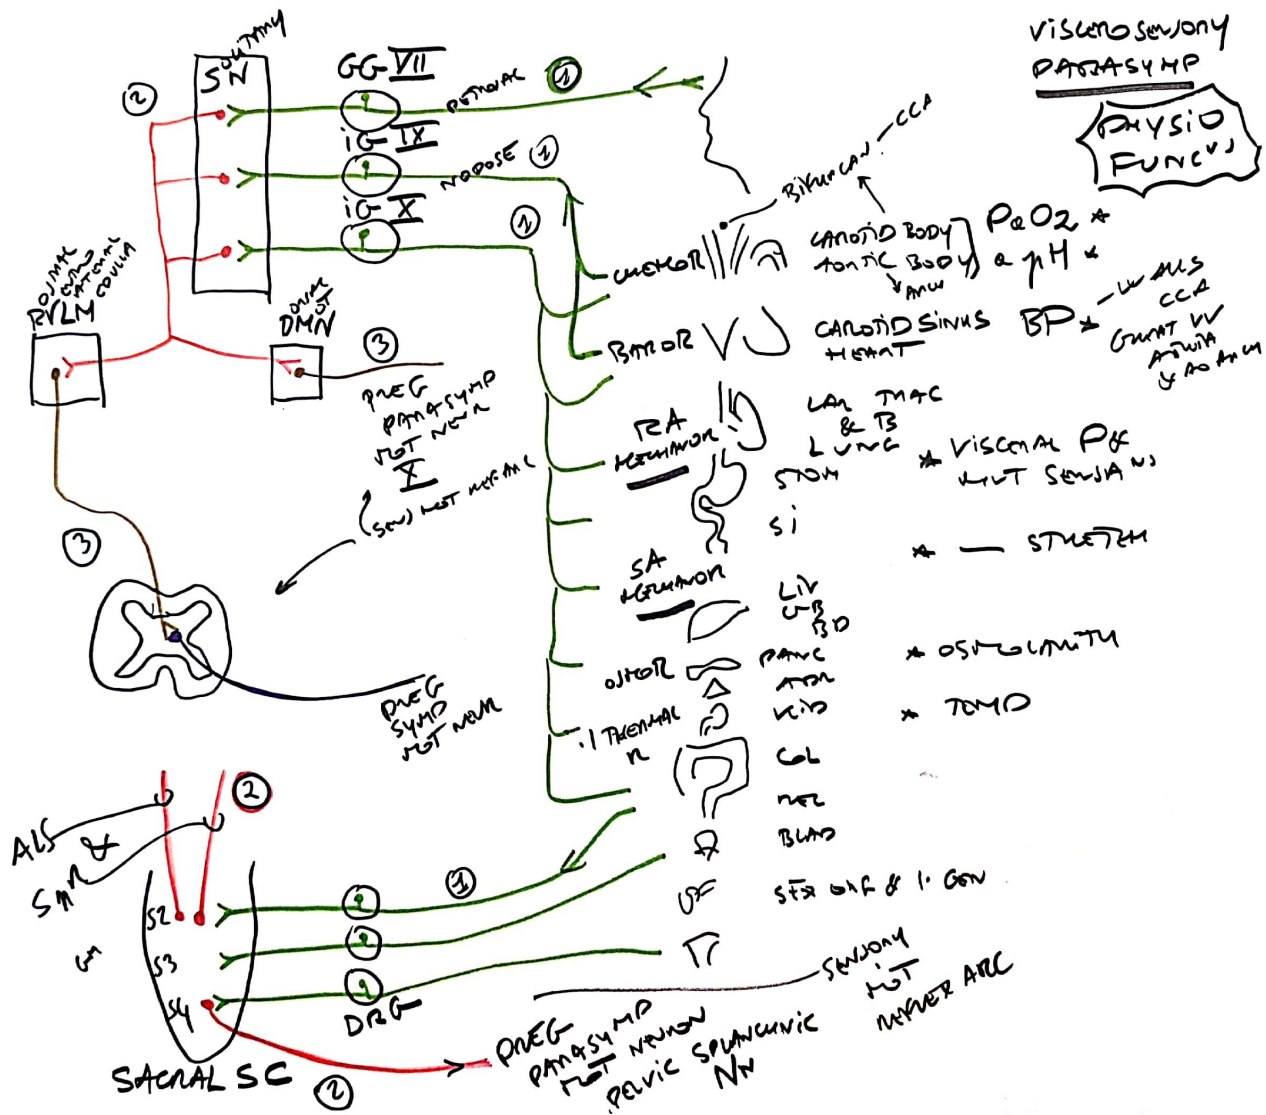 VISCEROSENSORY
PARASYMP
PHYSIO
FUNC
SOLITARY
SN
GG VII
PETROSAL
1
2
iG IX
NODOSE
1
iG X
1
BIFURCAN
CCA
CHEMOR
CAROTID BODY
AORTIC BODY
PaO2 *
a pH *
BAROR
CAROTID SINUS
HEART
BP *
WALLS
CCA
GREAT VV
RVLM
DMN
MOT
3
PREG
PARASYMP
MOT NEUR
X
SEN MOT REF ARC
RA
MECHANOR
LAR TRAC
& B
LUNG
* VISCERAL P &
MVT SENSANS
STOM
SI
* — STRETCH
SA
MECHANOR
LIV
GB
BD
OSMOR
PANC
ADR
* OSMOLARITY
THERMAL
R
KID
* TEMP
COL
REC
BLAD
3
PREG
SYMP
MOT NEUR
2
ALS
&
SMR
GM
S2
S3
S4
1
DRG
SACRAL SC
2
PREG
PARASYMP
MOT NEURON
PELVIC SPLANCHNIC
NN
SENSORY
MOT
REFLEX ARC